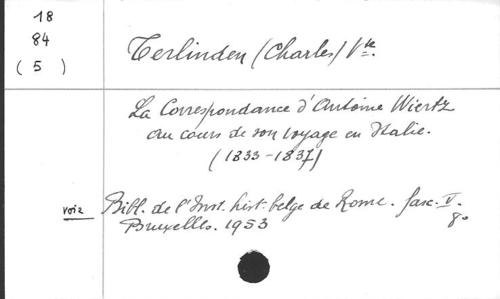 18
84
( 5 )
Terlinden (Charles) Vte.
La Correspondance d'Antoine Wiertz
au cours de son voyage en Italie.
(1833-1837)
voir Bibl. de l'Inst. hist. belge de Rome. fasc. V.
Bruxelles. 1953 8°